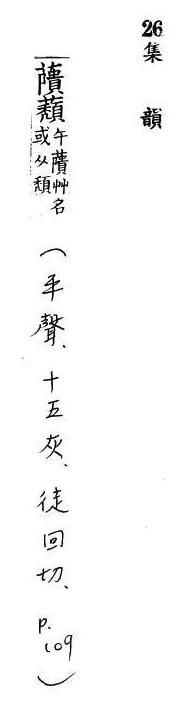 26 集韻
藬蘈
牛藬艸名
或从頹
(平聲、十五灰、徒回切、p.109)